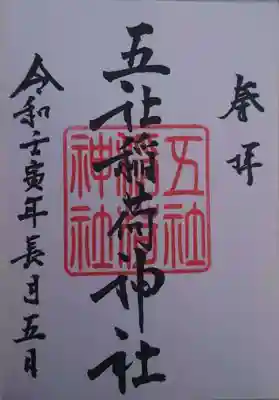 奉拝
五社稲荷神社
五社稲荷神社
令和壬寅年長月五日